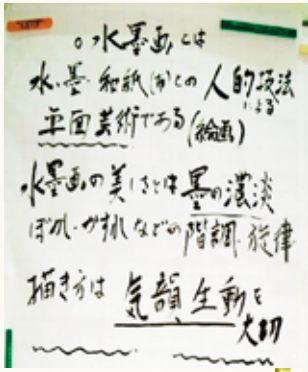 ○水墨画とは
水、墨 和紙(布)との人的技法による
平面芸術である(絵画)
水墨画の美しさとは墨の濃淡
ぼかし・かすれなどの階調、旋律
描き方は 気韻生動を
大切